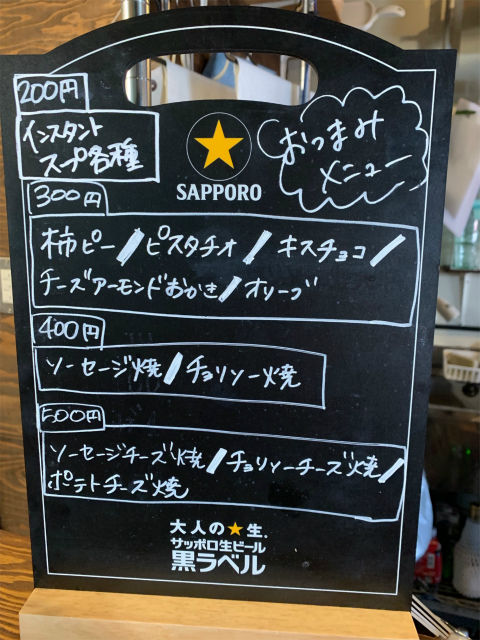 200円
インスタント
スープ各種
SAPPORO
おつまみ
メニュー
300円
柿ピー/ピスタチオ/キスチョコ/
チーズアーモンドおかき/オリーブ
400円
ソーセージ焼/チョリソー焼
500円
ソーセージチーズ焼/チョリソーチーズ焼/
ポテトチーズ焼
大人の★生.
サッポロ生ビール
黒ラベル